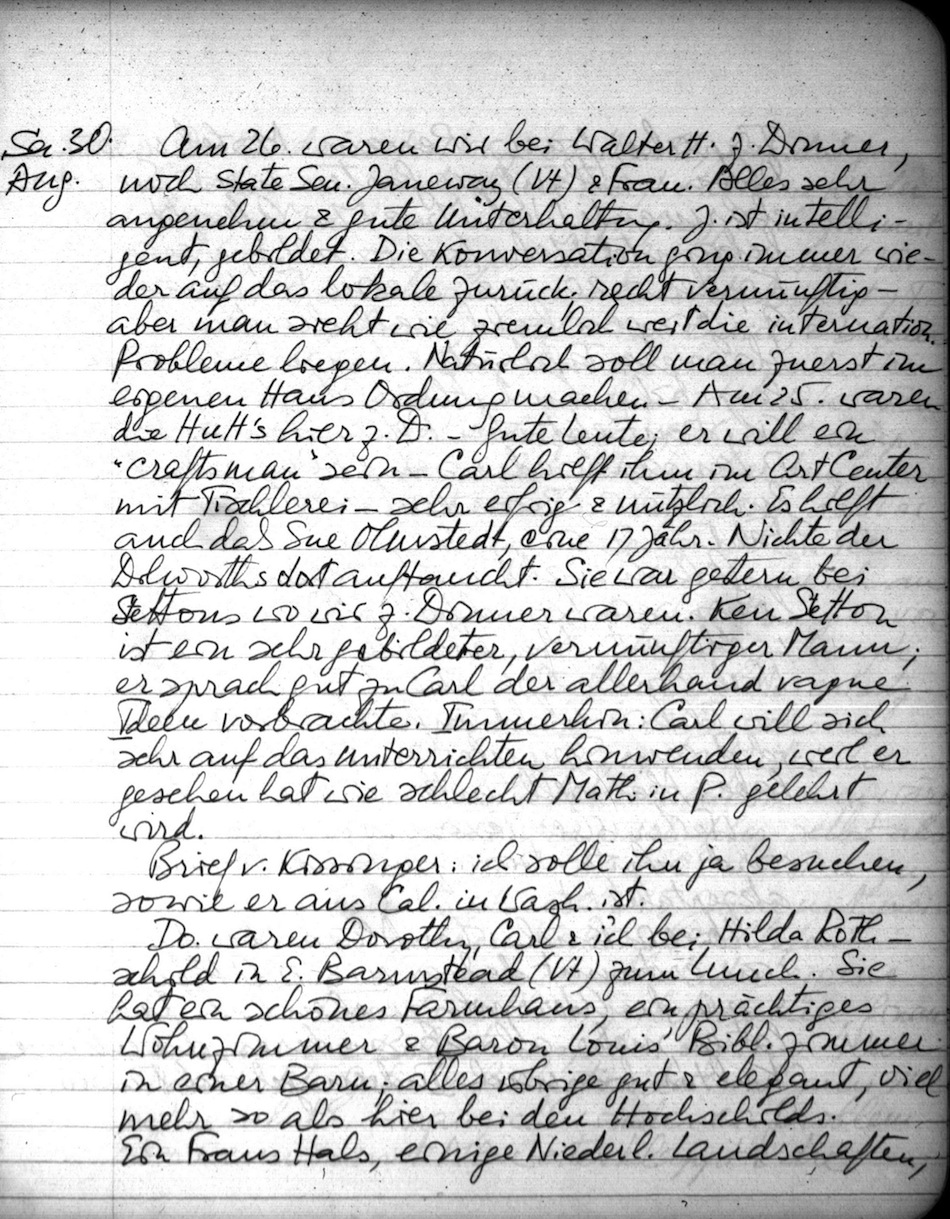 Sa. 30. Am 26. waren wir bei Walter H. z. Dinner,
Aug. noch State Sen. Janeway (Vt) & Frau. Alles sehr
angenehm & gute Unterhaltung. J. ist intelli-
gent, gebildet. Die Konversation ging immer wie-
der auf das lokale zurück; recht vernünftig –
aber man sieht wie ziemlich weit die internation.
Probleme liegen. Natürlich soll man zuerst im
eigenen Haus Ordnung machen. – Am 25. waren
die Hutt's hier z. D. – gute Leute; er will ein
"craftsman" sein – Carl hilft ihm im Art Center
mit Tischlerei – sehr eifrig & nützlich. Es hilft
auch daß Sue Olmstedt, eine 17 jähr. Nichte der
Dilworths dort auftaucht. Sie war gestern bei
Settons wo wir z. Dinner waren. Ken Setton
ist ein sehr gebildeter, vernünftiger Mann;
er sprach gut zu Carl der allerhand vague
Ideen vorbrachte. Immerhin: Carl will sich
sehr auf das unterrichten hinwenden, weil er
gesehen hat wie schlecht Math. in P. gelehrt
wird.
Brief v. Kissinger: ich solle ihn ja besuchen,
sowie er aus Cal. in Wash. ist.
Do. waren Dorothy, Carl & ich bei Hilda Roth-
schild in E. Barnstead (Vt) zum Lunch. Sie
hat ein schönes Farmhaus, ein prächtiges
Wohnzimmer & Baron Louis' Bibl. zimmer
in einer Barn; alles übrige gut & elegant, viel
mehr so als hier bei den Hochschilds.
Ein Frans Hals, einige Niederl. Landschaften,